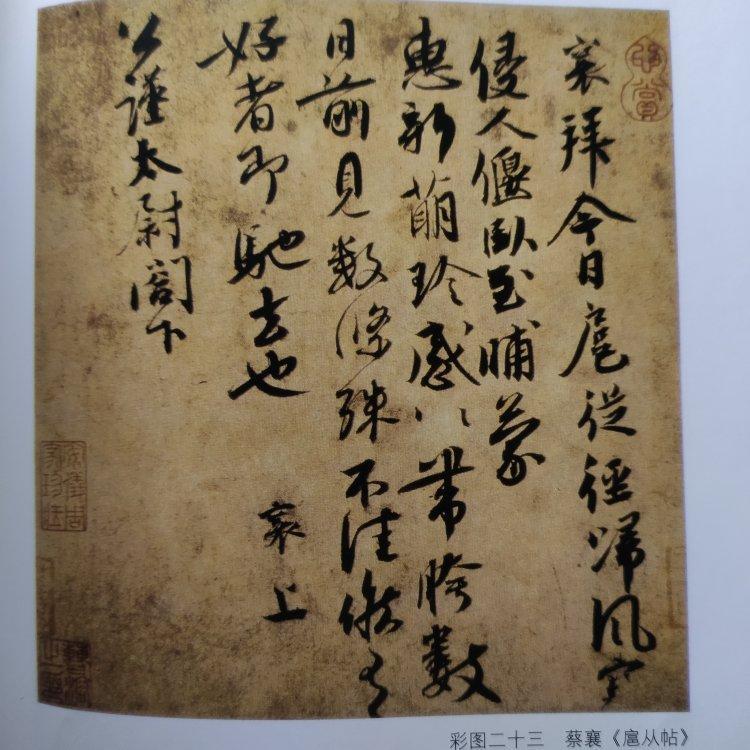 襄拜今日扈從徑歸風寒
侵人偃臥至晡蒙
惠新萌珍感〻帶胯數
日前見數條殊不佳候有
好者即馳去也
襄上
公謹太尉閤下
彩图二十三 蔡襄《扈从帖》